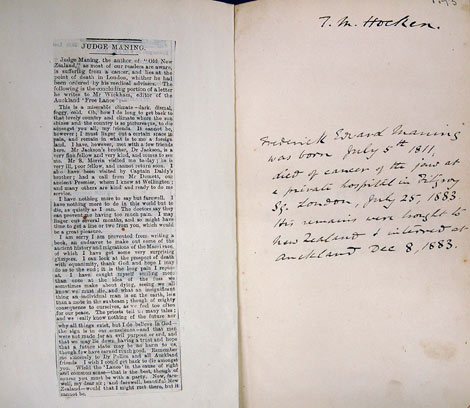 JUDGE MANING.
Judge Maning, the author of "Old New
Zealand," as most of our readers are aware,
is suffering from a cancer, and lies at the
point of death in London, whither he had
been ordered by his medical advisers. The
following is the concluding portion of a letter
he writes to Mr Wickham, editor of the
Auckland "Free Lance":—
This is a miserable climate—dark, dismal,
foggy, cold. Oh, how I do long to get back to
that lovely country and climate where the sun
shines and the country is so picturesque, to die
amongst you all, my friends. It cannot be,
however; I must linger out a certain time in
pain, and remain in what is to me a foreign
land. I have, however, met with a few friends
here. Mr Jackson's brother, Dr Jackson, is a
very fine fellow and very kind, and comes to see
me. Mr S. Morrin visited me to-day; he is
very ill, poor fellow, and cannot return soon. I
also have been visited by Captain Daldy's
brother; had a call from Mr Domett, our
ancient Premier, whom I knew at Wellington,
and many others are kind and ready to do me
service.
I have nothing more to say but farewell. I
have nothing more to do in this world but to
die, as quietly as I can. The doctors say they
can prevent me having too much pain. I may
linger out several months, and so might have
time to get a line or two from you, which would
be a great pleasure.
I am sorry I am prevented from writing a
book, an endeavour to make out some of the
ancient history and migrations of the Maori race,
of which I have got some very surprising
glimpses. I can look at the prospect of death
with equanimity, thank God, and hope I may
do so to the end; it is the long pain I repine
at. I have caught myself smiling more
than once at the idea of the fuss we
sometimes make about dying, seeing we all
know we must die, and what an insignificant
thing an individual man is on the earth, less
than a mote in the sunbeam; though of mighty
consequence to ourselves, as we feel too often
for our peace. The priests tell us many tales;
and we really know nothing of the future nor
why all things exist, but I do believe in God—
the sign is in our conscience—and that men
were not made for an evil purpose or end, and
that we may lie down, having a trust and hope
that a future state may be no harm to us,
though few have earned much good. Remember
me sincerely to Dr Pollen and all Auckland
friends. I wish I could get back to die amongst
you. Wield the 'Lance' in the cause of right
and common sense—that is the best, though of
course you must be with a party. Now, farewell,
my dear sir; and farewell, beautiful New
Zealand—would that I might rest there, but it
cannot be.
T. M. Hocken.
Frederick Edward Maning
was born July 5th 1811,
died of cancer of the jaw at
a private hospital in Fitzroy
Sq. London, July 25, 1883
His remains were brought to
New Zealand & interred at
Auckland Dec 8, 1883.